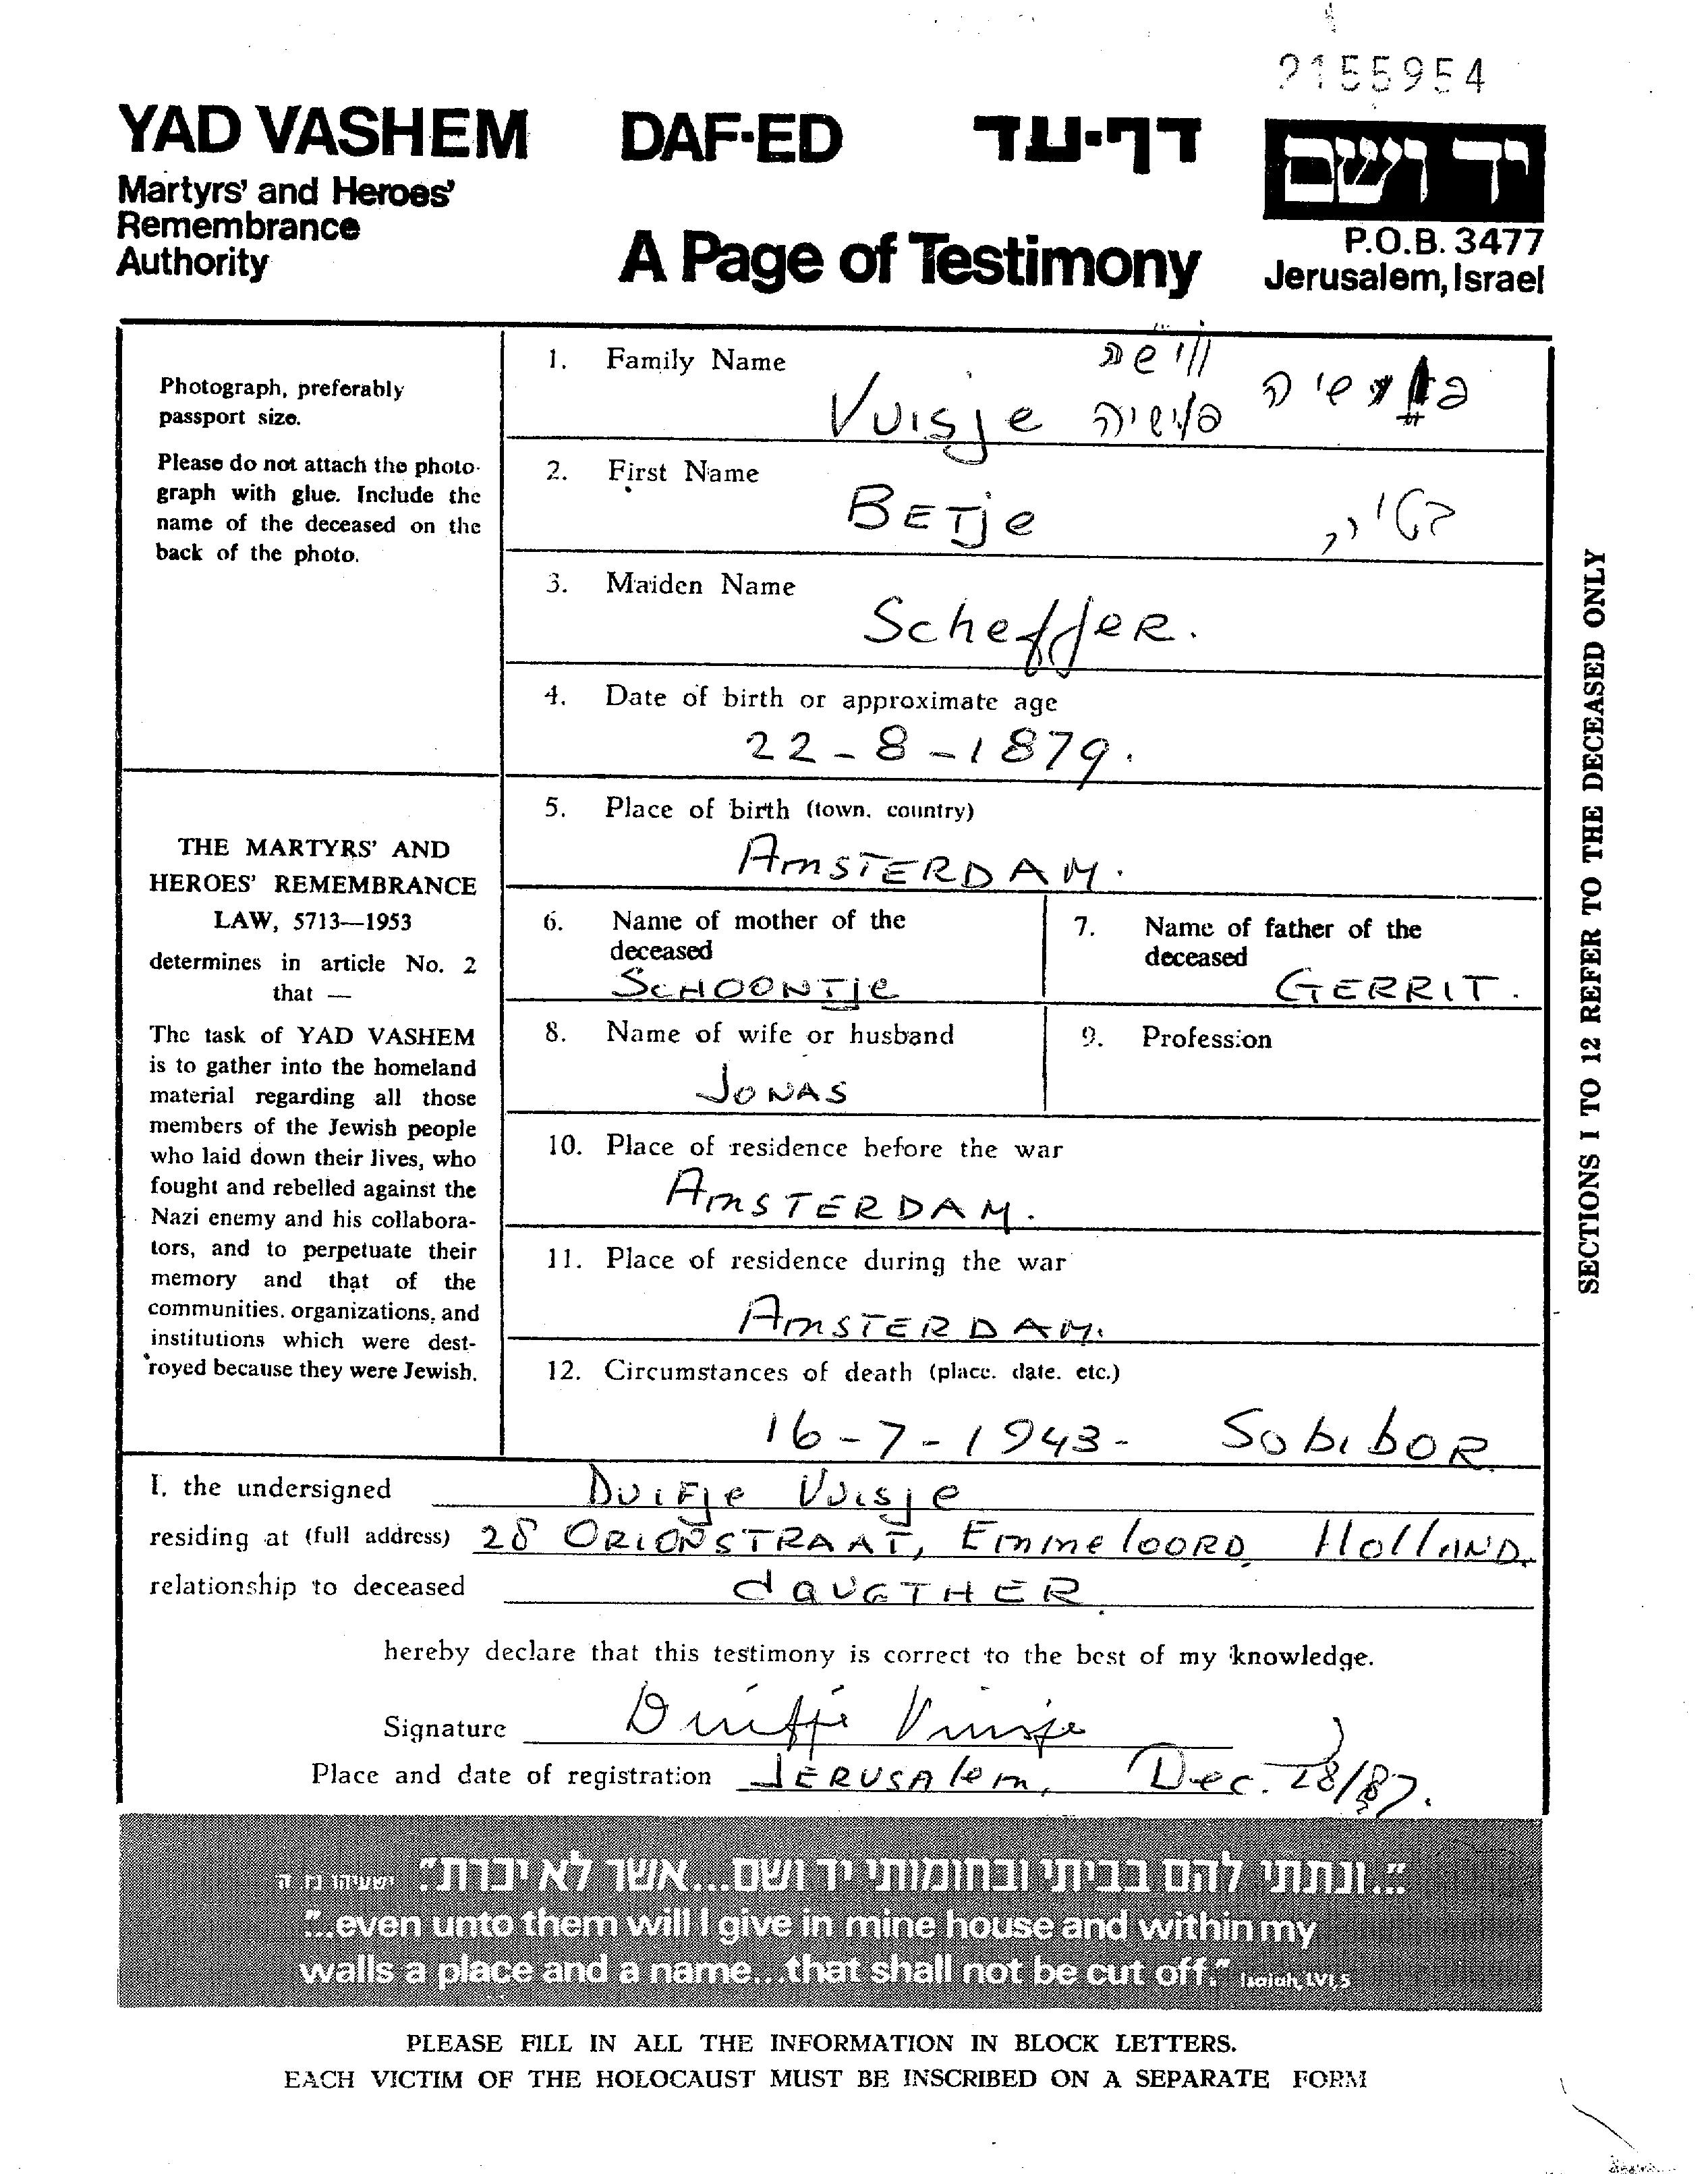 2155954
YAD VASHEM DAF-ED דף-עד יד ושם
Martyrs' and Heroes'
Remembrance
Authority
A Page of Testimony
P.O.B. 3477
Jerusalem, Israel
Photograph, preferably
passport size.
Please do not attach the photo-
graph with glue. Include the
name of the deceased on the
back of the photo.
THE MARTYRS' AND
HEROES' REMEMBRANCE
LAW, 5713—1953
determines in article No. 2
that —
The task of YAD VASHEM
is to gather into the homeland
material regarding all those
members of the Jewish people
who laid down their lives, who
fought and rebelled against the
Nazi enemy and his collabora-
tors, and to perpetuate their
memory and that of the
communities, organizations, and
institutions which were dest-
royed because they were Jewish.
1. Family Name
Vuisje
2. First Name
BETje
3. Maiden Name
ScheffeR.
4. Date of birth or approximate age
22-8-1879.
5. Place of birth (town, country)
AmSTERDAM.
6. Name of mother of the
deceased
SCHOONTje
7. Name of father of the
deceased
GERRIT.
8. Name of wife or husband
JONAS
9. Profession
10. Place of residence before the war
AmSTERDAM.
11. Place of residence during the war
AmSTERDAM.
12. Circumstances of death (place, date, etc.)
16-7-1943- SobiboR
SECTIONS 1 TO 12 REFER TO THE DECEASED ONLY
I, the undersigned DuiFje Vuisje
residing at (full address) 28 ORIONSTRAAT, EmmelOORD, HollAND.
relationship to deceased daUGTHER.
hereby declare that this testimony is correct to the best of my knowledge.
Signature Duifje Vuisje
Place and date of registration JERUSAlem, Dec. 28/87.
"...ונתתי להם בביתי ובחומותי יד ושם...אשר לא יכרת." ישעיהו נו ה
"..even unto them will I give in mine house and within my
walls a place and a name...that shall not be cut off." Isaiah, LVI,5
PLEASE FILL IN ALL THE INFORMATION IN BLOCK LETTERS.
EACH VICTIM OF THE HOLOCAUST MUST BE INSCRIBED ON A SEPARATE FORM